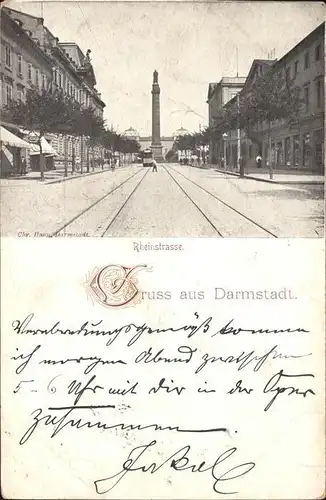 Chr. Darmstadt.
Rheinstrasse.
Gruss aus Darmstadt.
Verabredungsgemäß komme
ich morgen Abend zwischen
5-6 Uhr mit dir in der Oper
zusammen
Jakob